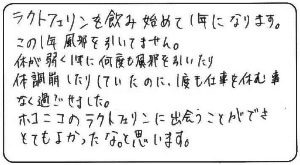 ラクトフェリンを飲み始めて1年になります。
この1年風邪を引いてません。
体が弱く1年に何度も風邪を引いたり
体調崩したりしていたのに、1度も仕事を休む事
なく過ごせました。
ホコニコのラクトフェリンに出会うことができ
とてもよかったなと思います。